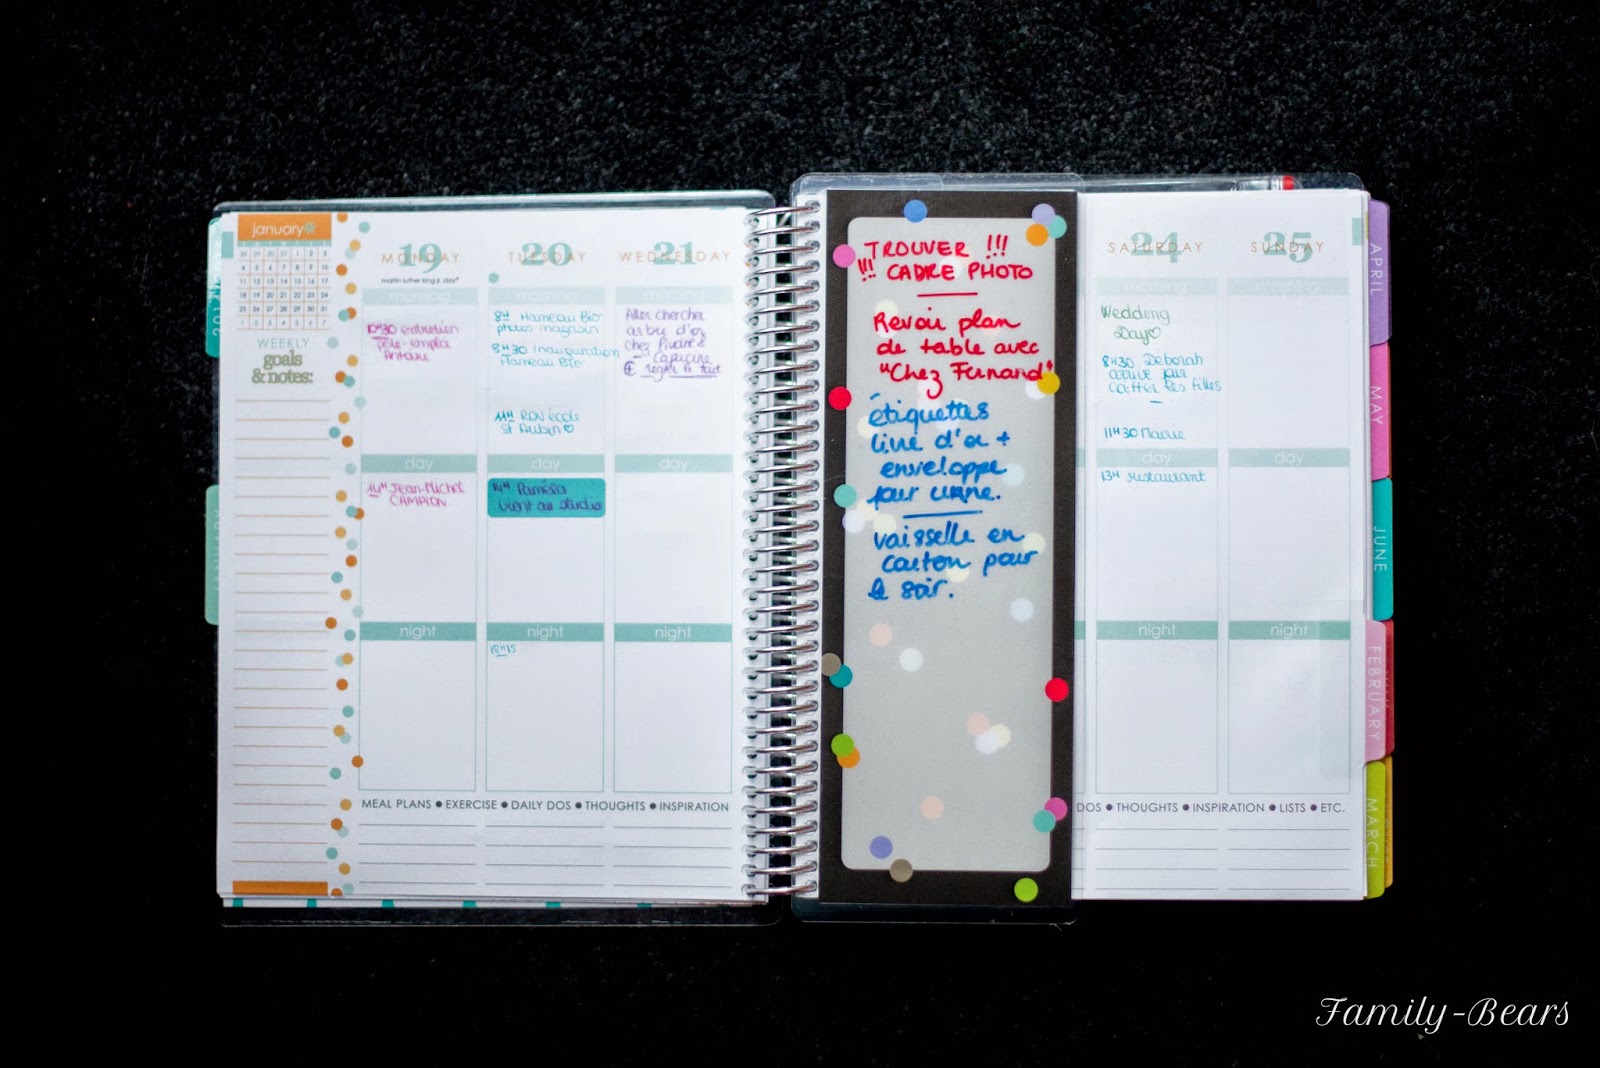 january
WEEKLY
goals
& notes:
19
MONDAY
martin luther king jr. day*
morning
10H30 entretien
pôle-emploi
Antoine
day
14H Jean-Michel
CAMPION
night
20
TUESDAY
morning
8H Hameau Bio
photos magasin
8H30 Inauguration
Hameau Bio
11H RDV école
St Aubin♡
day
14H Paméla
vient au studio
night
21
WEDNESDAY
morning
Aller chercher
arbre d'or
chez
Capucine
+ régler le tout
day
night
MEAL PLANS • EXERCISE • DAILY DOS • THOUGHTS • INSPIRATION
TROUVER !!!
!!! CADRE PHOTO
Revoir plan
de table avec
"Chez Fernand"
étiquettes
livre d'or +
enveloppe
pour urne.
vaisselle en
carton pour
le soir.
24
SATURDAY
morning
Wedding
Day♡
8H30 Déborah
arrive pour
coiffer les filles
11H30 Mairie
day
13H restaurant
night
25
SUNDAY
morning
day
night
DOS • THOUGHTS • INSPIRATION • LISTS • ETC.
APRIL
MAY
JUNE
FEBRUARY
MARCH
JANUARY
Family-Bears